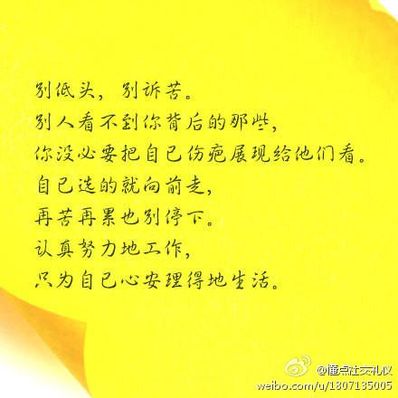 别低头，别诉苦。
别人看不到你背后的那些，
你没必要把自已伤疤展现给他们看。
自已选的就向前走，
再苦再累也别停下。
认真努力地工作，
只为自已心安理得地生活。
@懂点社交礼仪
weibo.com/u/1807135005